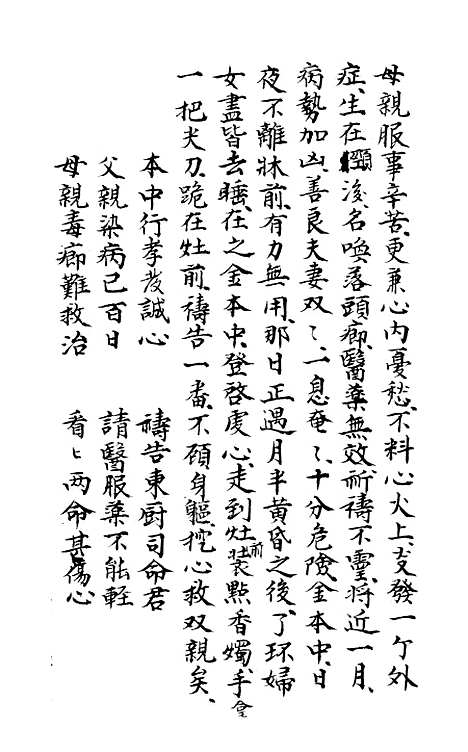 母親服事辛苦、更兼心内憂愁、不料心火上、攴發一个外
症、生在頸後、名喚落頭癤、醫藥無效祈禱不靈、将近一月、
病勢加凶、善良夫妻双〻、一息奄〻、十分危險、金本中、日
夜不離牀前、有力無用、那日正遇月半黄昏之後、了环婦
女盡皆去睡、在之金本中、登啓虔心、走到灶前裝點香燭、手拿
一把尖刀、跪在灶前、禱告一番、不顧身軀、挖心救双親矣、
本中行孝发誠心　禱告東厨司命君
父親染病已百日　請醫服藥不能輕
母親毒癤難救治　看〻両命甚傷心